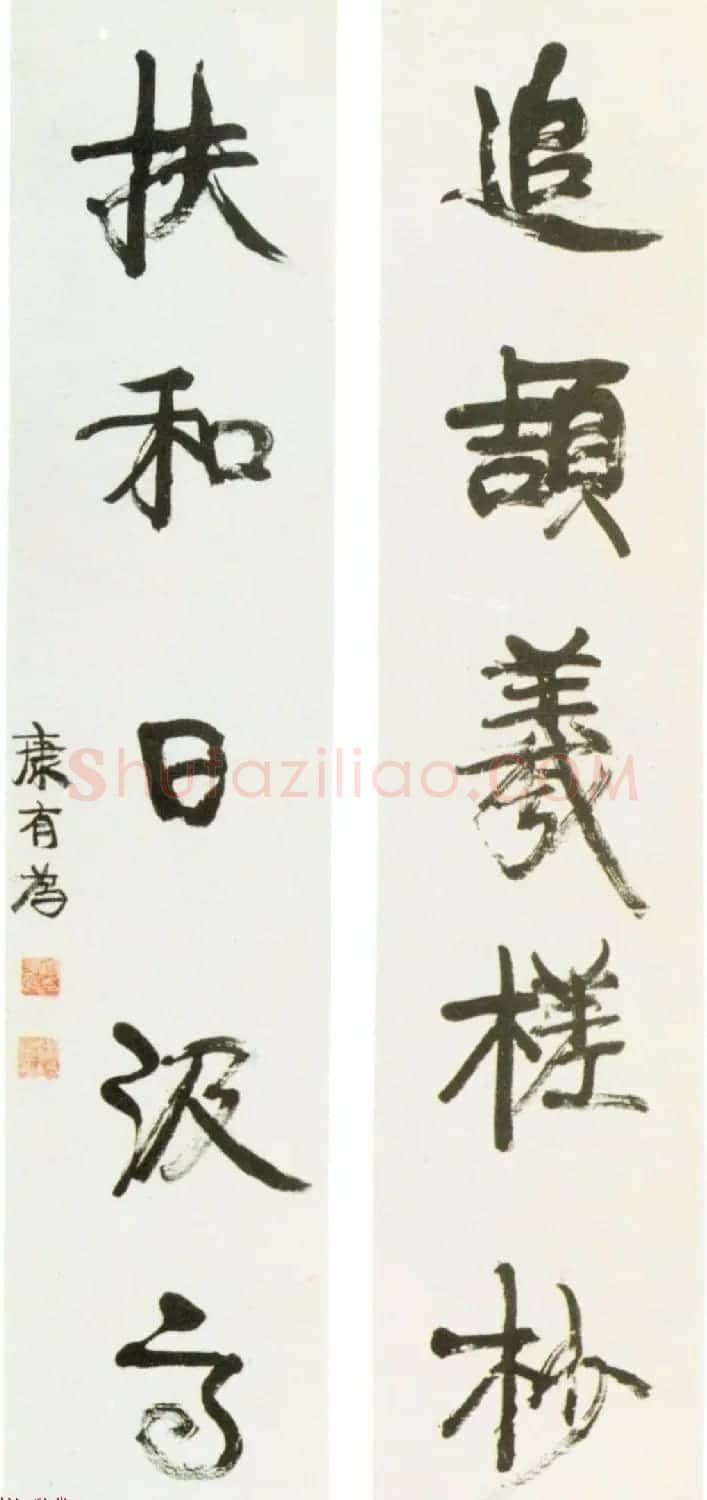 追頡羲槎杪
扶和日汲高
康有為
Shufaziliao.COM